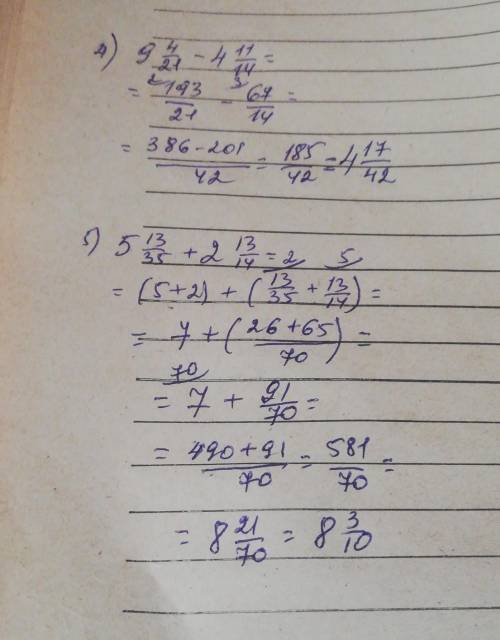 4) 9 4/21 - 4 11/14 =
= 193/21 - 67/14 =
= 386-201/42 = 185/42 = 4 17/42
5) 5 13/35 + 2 13/14 =
= (5+2) + (13/35 + 13/14) =
= 7 + (26+65/70) =
= 7 + 91/70 =
= 490+91/70 = 581/70 =
= 8 21/70 = 8 3/10